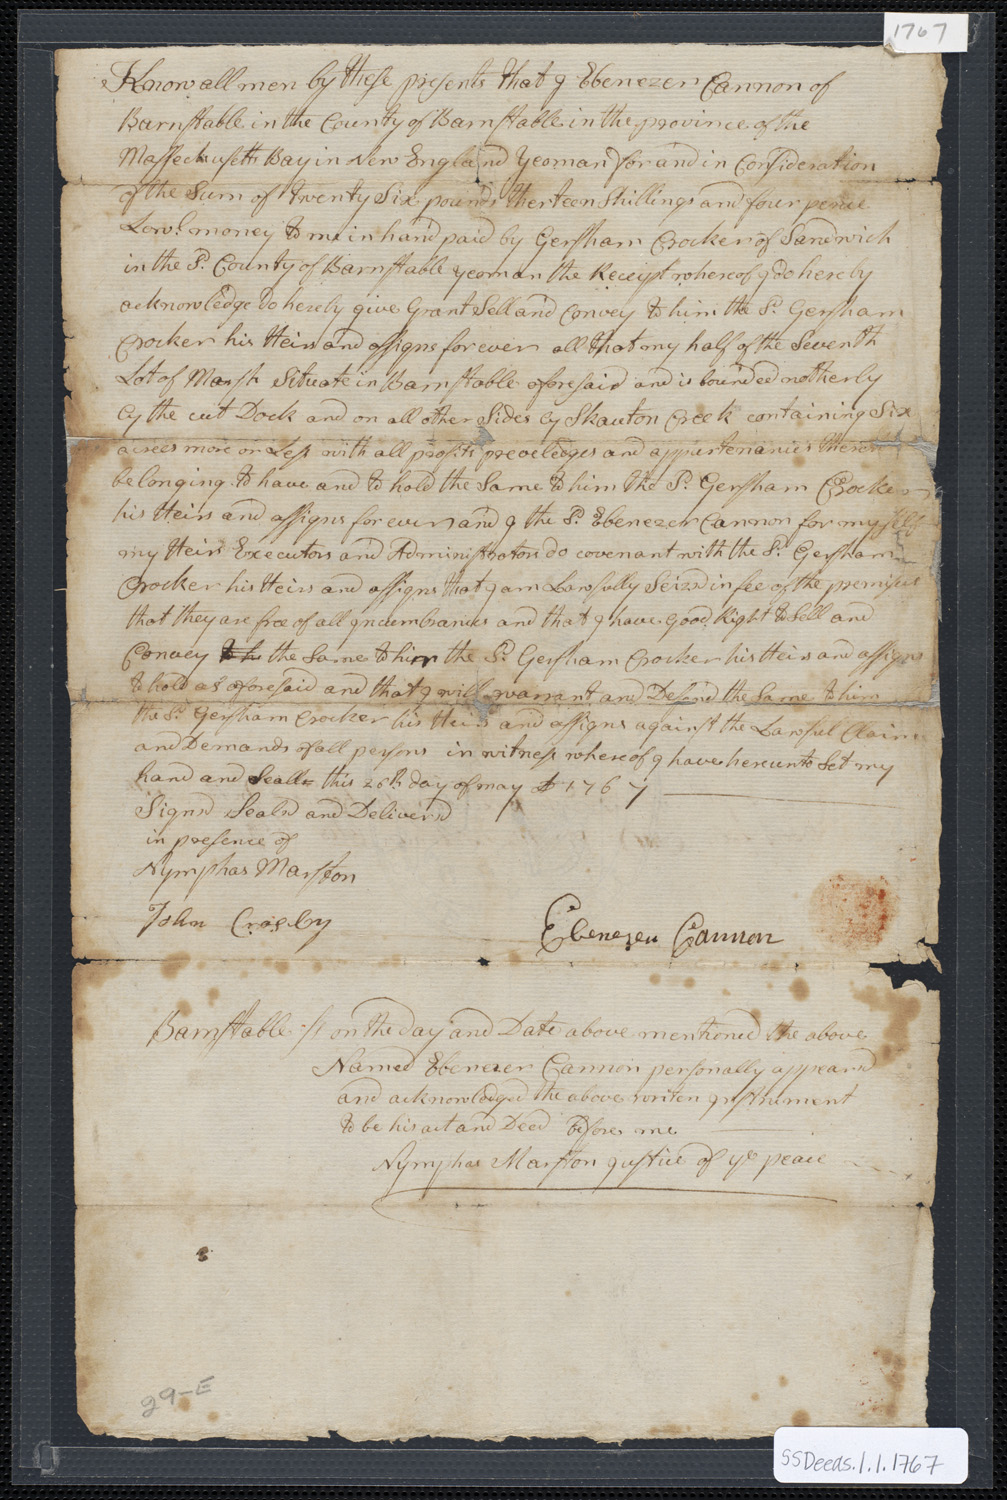 1767
Know all men by these presents that I Ebenezer Cannon of
Barnstable in the County of Barnstable in the province of the
Massechusetts Bay in New England Yeoman for and in Consideration
of the Sum of twenty Six pounds therteen Shillings and four pence
Lawl. money to me in hand paid by Gersham Crocker of Sandwich
in the Sd. County of Barnstable yeoman the Receipt whereof I do hereby
acknowledge do hereby give Grant Sell and Convey to him the Sd. Gersham
Crocker his Heirs and assigns for ever all that my half of the Seventh
Lot of Marsh Situate in Barnstable aforesaid and is bounded notherly
by the cut Dock and on all other Sides by Skauton Creek containing Six
acrees more or Less with all profits preveledges and appurtenancies thereto
belonging to have and to hold the Same to him the Sd. Gersham Crocker
his Heirs and assigns for ever and I the Sd. Ebenezer Cannon for my self
my Heirs Executors and Administrators do covenant with the Sd. Gersham
Crocker his Heirs and assigns that I am Lawfully Seizd in fee of the premises
that they are free of all Incumbrances and that I have good Right to Sell and
Convey to his the Same to him the Sd. Gersham Crocker his Heirs and assigns
to hold as aforesaid and that I will warrant and Defend the Same to him
the Sd. Gersham Crocker his Heirs and assigns against the Lawful Claims
and Demands of all persons in witness whereof I have hereunto Set my
hand and Seall this 26th day of may A 1767
Signd Seald and Deliverd
in presence of
Nymphas Marston
John Crosby
Ebenezer Cannon
Barnstable ss on the day and Date above mentioned the above
Named Ebenezer Cannon personally appeard
and acknowledged the above writen Instrument
to be his act and Deed before me
Nymphas Marston Justice of ye peace
29-E
SSDeeds.1.1.1767